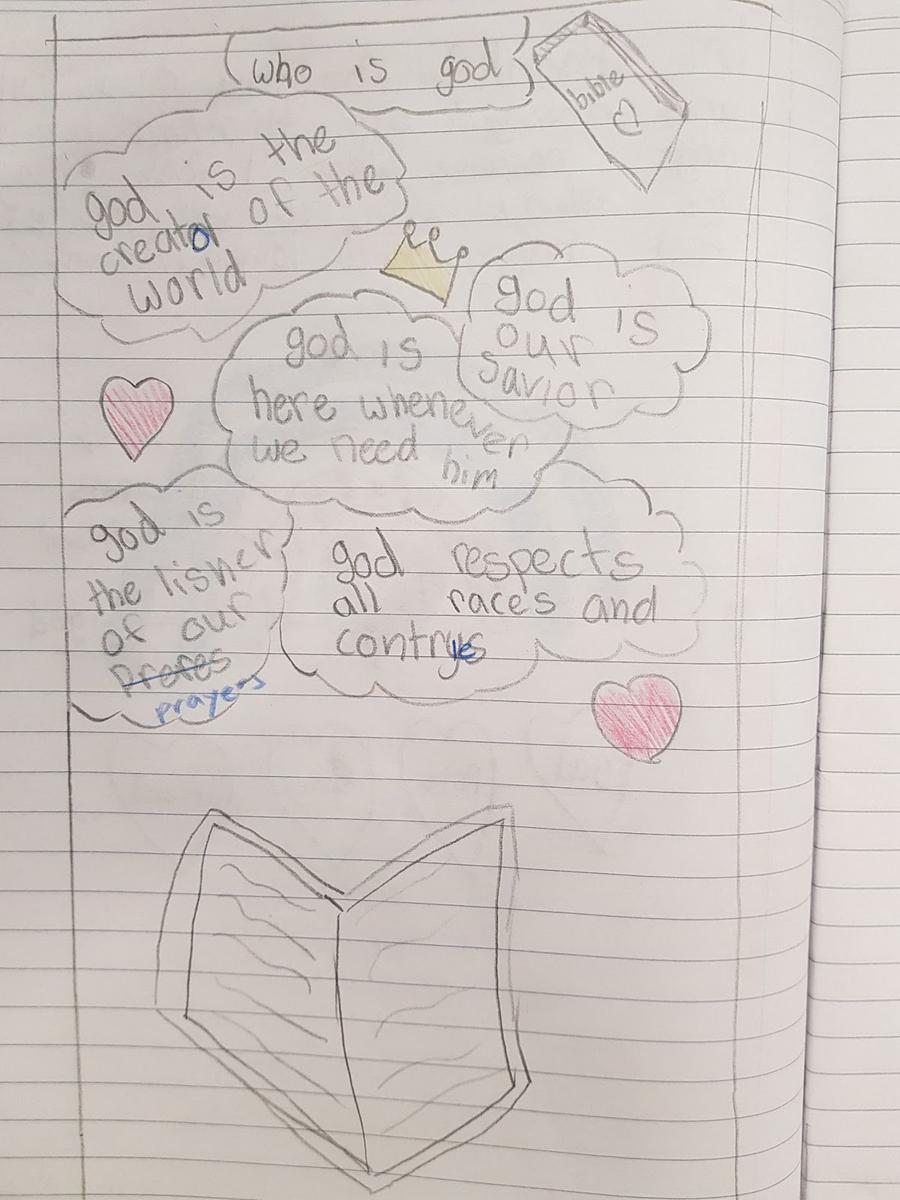 who is god
bible
god is the
creator of the
world
god is
our
savior
god is
here whenever
we need him
god is
the lisner
of our
prefes
prayers
god respects
all race's and
contryes